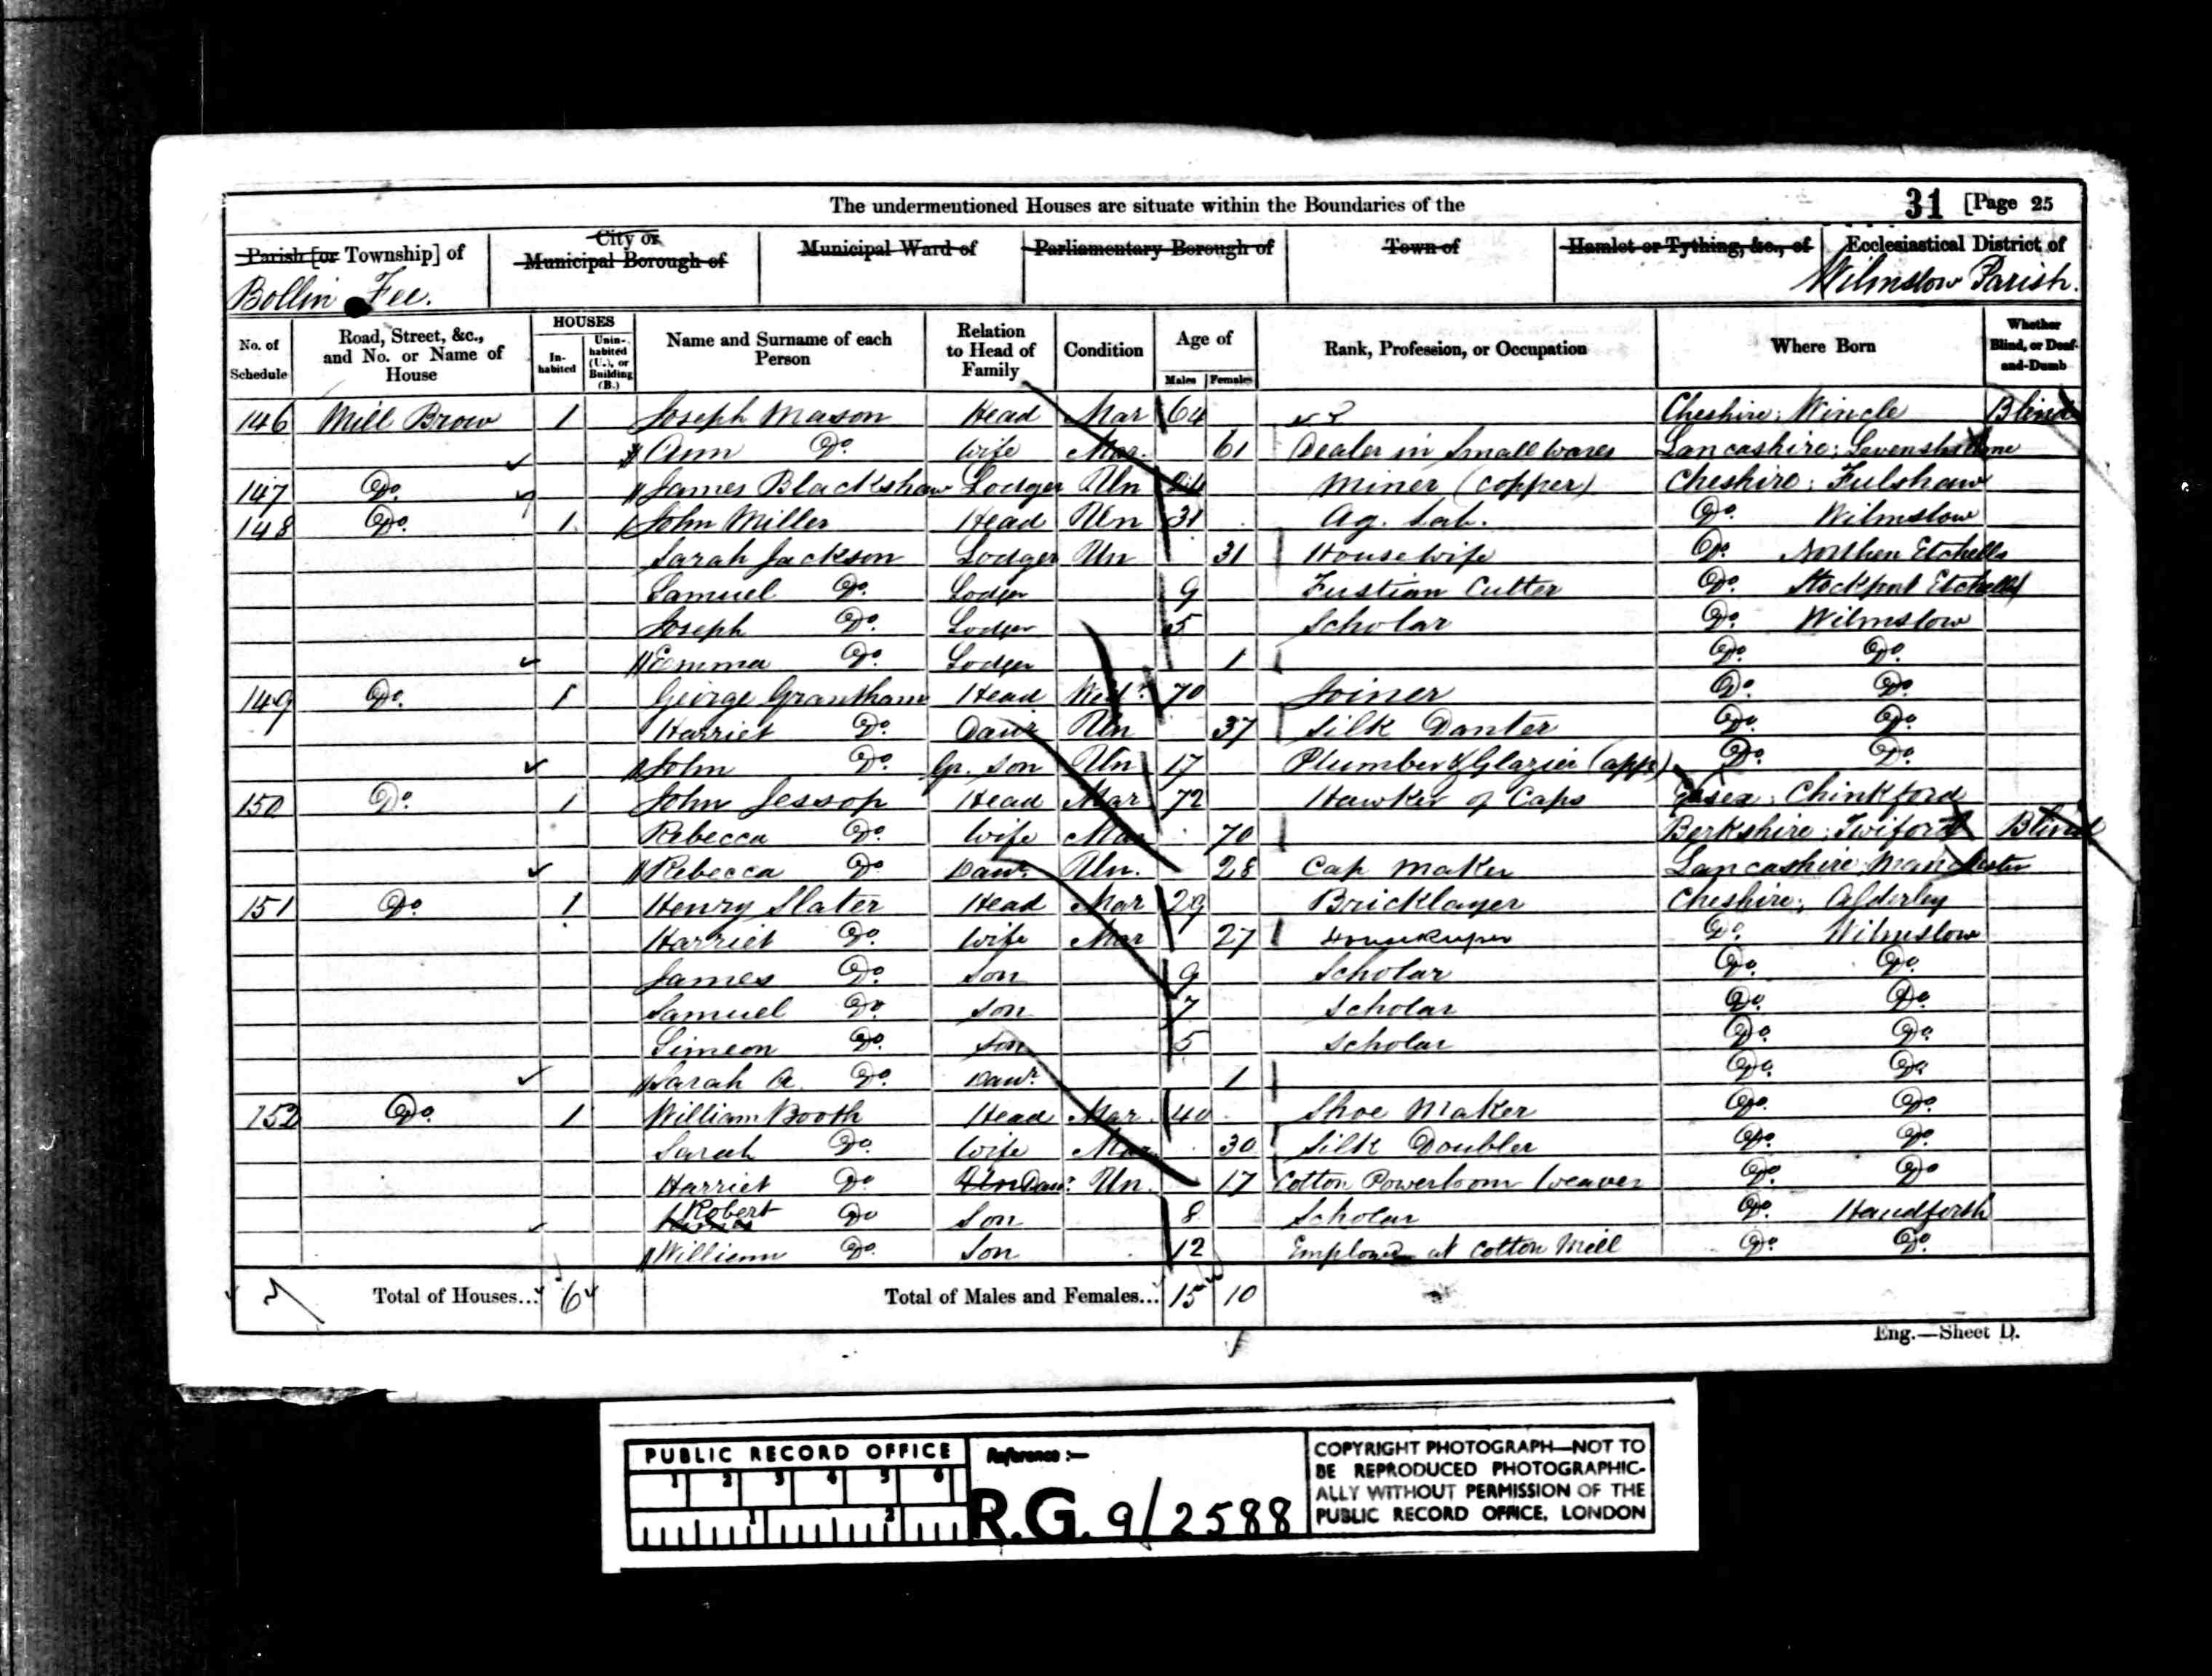 The undermentioned Houses are situate within the Boundaries of the 31 [Page 25
Parish [or Township] of City or Municipal Borough of Municipal Ward of Parliamentary Borough of Town of Hamlet or Tything, &c., of Ecclesiastical District of
Bollin Fee. Wilmslow Parish.
No. of Schedule Road, Street, &c., and No. or Name of House HOUSES Inhabited Uninhabited (U.), or Building (B.) Name and Surname of each Person Relation to Head of Family Condition Age of Males Females Rank, Profession, or Occupation Where Born Whether Blind, or Deaf-and-Dumb
146 Mill Brow 1 Joseph Mason Head Mar 64 Cheshire; Wincle Blind
Ann Do. Wife Mar. 61 Dealer in Smallwares Lancashire; Levenshulme
147 Do. James Blackshaw Lodger Un 24 Miner (Copper) Cheshire; Fulshaw
148 Do. 1 John Miller Head Un 31 Ag. Lab. Do. Wilmslow
Sarah Jackson Lodger Un 31 Housewife Do. Northen Etchells
Samuel Do. Lodger 9 Fustian Cutter Do. Stockport Etchells
Joseph Do. Lodger 5 Scholar Do. Wilmslow
Emma Do. Lodger 1 Do. Do.
149 Do. 1 George Grantham Head Widr. 70 Joiner Do. Do.
Harriet Do. Daur Un 37 Silk Danter Do. Do.
John Do. Gr. son Un 17 Plumber & Glazier (app) Do. Do.
150 Do. 1 John Jessop Head Mar 72 Hawker of Caps Essex; Chinkford
Rebecca Do. Wife Mar 70 Berkshire; Twiford Blind
Rebecca Do. Daur. Un. 28 Cap Maker Lancashire Manchester
151 Do. 1 Henry Slater Head Mar 29 Bricklayer Cheshire; Alderley
Harriet Do. Wife Mar 27 Housekeeper Do. Wilmslow
James Do. Son 9 Scholar Do. Do.
Samuel Do. Son 7 Scholar Do. Do.
Simeon Do. Son 5 Scholar Do. Do.
Sarah A. Do. Daur. 1 Do. Do.
152 Do. 1 William Booth Head Mar. 40 Shoe Maker Do. Do.
Sarah Do. Wife Mar 30 Silk Doubler Do. Do.
Harriet Do. Un Daur. Un. 17 Cotton Powerloom Weaver Do. Do.
Robert Do Son 8 Scholar Do. Handforth
William Do. Son 12 Employed at Cotton Mill Do. Do.
Total of Houses... 6 Total of Males and Females... 15 10
Eng.—Sheet D.
PUBLIC RECORD OFFICE
1 2 3 4 5 6
1 2
Reference :—
R.G. 9/2588
COPYRIGHT PHOTOGRAPH—NOT TO
BE REPRODUCED PHOTOGRAPHIC-
ALLY WITHOUT PERMISSION OF THE
PUBLIC RECORD OFFICE, LONDON